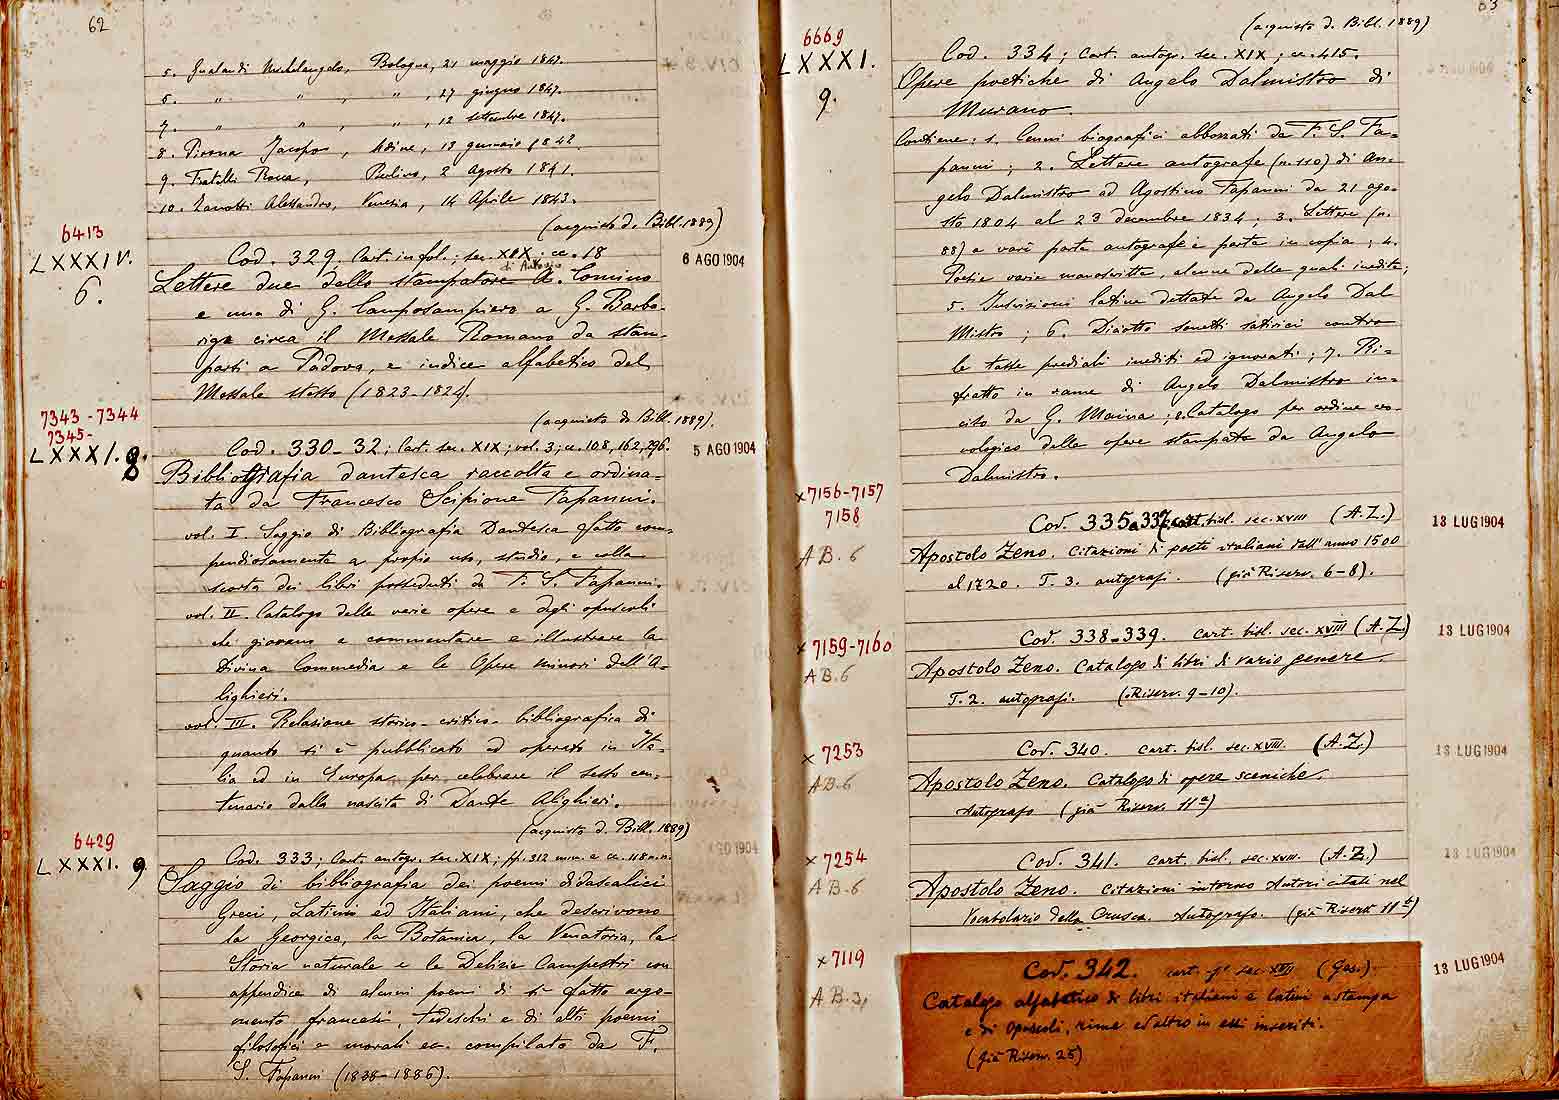 62
5. Gualandi Michelangelo, Bologna, 21 maggio 1847.
5. " " , " , 27 giugno 1847.
7. " " , " , 12 settembre 1847.
8. Pirona Jacopo, Udine, 13 gennaio 1842.
9. Fratelli Rocca, Berlino, 2 Agosto 1841.
10. Zanotti Alessandro, Venezia, 14 Aprile 1843.
(acquisto d. Bibl. 1889)
6413
LXXXIV.
6.
Cod. 329. Cart. in fol.; sec. XIX; cc. 18
6 AGO 1904
di Antonio
Lettere due dello stampatore A. Comino
e una di G. Camposampiero a G. Barba-
rigo circa il Messale Romano da stam-
parsi a Padova, e indice alfabetico del
Messale stesso (1823-1824).
(acquisto da Bibl. 1889).
7343 - 7344
7345-
LXXXI. 8.
Cod. 330-32; Cart. sec. XIX; vol. 3; cc. 108, 162, 296.
5 AGO 1904
Bibliografia dantesca raccolta e ordina-
ta da Francesco Scipione Fapanni.
vol. I. Saggio di Bibliografia Dantesca fatto com-
pendiosamente a proprio uso, studio, e colla
scorta dei libri posseduti da F. S. Fapanni.
vol. II. Catalogo delle varie opere e degli opuscoli
che giovano a commentare e illustrare la
Divina Commedia e le Opere minori dell'A-
lighieri.
vol. III. Relazione storico-critico-bibliografica di
quanto si è pubblicato ed operato in Ita-
lia ed in Europa per celebrare il sesto cen-
tenario dalla nascita di Dante Alighieri.
(acquisto d. Bibl. 1889)
6429
LXXXI. 9
Cod. 333; Cart. autogr. sec. XIX; pp. 312 num. e cc. 118 n.n.
AGO 1904
Saggio di bibliografia dei poemi didascalici
Greci, Latini ed Italiani, che descrivono
la Georgica, la Botanica, la Venatoria, la
Storia naturale e le Delizie Campestri con
appendice di alcuni poemi di sì fatto argo-
mento francesi, tedeschi e di altri poemi
filosofici e morali ec. compilato da F.
S. Fapanni (1838-1886).
63
(acquisto d. Bibl. 1889)
6669
LXXXI.
9.
Cod. 334; Cart. autogr. sec. XIX; cc. 415.
Opere poetiche di Angelo Dalmistro di
Murano.
Contiene: 1. Cenni biografici abbozzati da F. S. Fa-
panni; 2. Lettere autografe (n. 110) di An-
gelo Dalmistro ad Agostino Fapanni da 21 ago-
sto 1804 al 23 decembre 1834; 3. Lettere (n.
88) a varî parte autografe e parte in copia; 4.
Poesie varie manoscritte, alcune delle quali inedite;
5. Iscrizioni latine dettate da Angelo Dal
Mistro; 6. Diciotto sonetti satirici contro
le tasse prediali inediti ed ignorati; 7. Ri-
tratto in rame di Angelo Dalmistro in-
ciso da G. Maina; 8. Catalogo per ordine cro-
nologico delle opere stampate da Angelo
Dalmistro.
x 7156-7157
7158
AB. 6
Cod. 335 a 337, cart. bisl. sec. XVIII (A. Z.)
13 LUG 1904
Apostolo Zeno. Citazioni di poeti italiani dall'anno 1500
al 1720. T. 3. autografi. (già Riserv. 6-8).
x 7159-7160
AB. 6
Cod. 338-339. cart. bisl. sec. XVIII (A. Z.)
13 LUG 1904
Apostolo Zeno. Catalogo di libri di vario genere.
T. 2. autografi. (Riserv. 9-10).
x 7253
AB. 6
Cod. 340. cart. bisl. sec. XVIII. (A. Z.)
13 LUG 1904
Apostolo Zeno. Catalogo di opere sceniche.
Autografo (già Riserv. 11ª)
x 7254
AB. 6
Cod. 341. cart. bisl. sec. XVIII. (A. Z.)
13 LUG 1904
Apostolo Zeno. Citazioni intorno Autori citati nel
Vocabolario della Crusca. Autografo. (già Riserv. 11b)
x 7119
AB. 3,
Cod. 342. cart. fº sec. XVII (Gas.).
13 LUG 1904
Catalogo alfabetico di libri italiani e latini a stampa
e di opuscoli, rime ed altro in essi inseriti.
(già Riserv. 25)